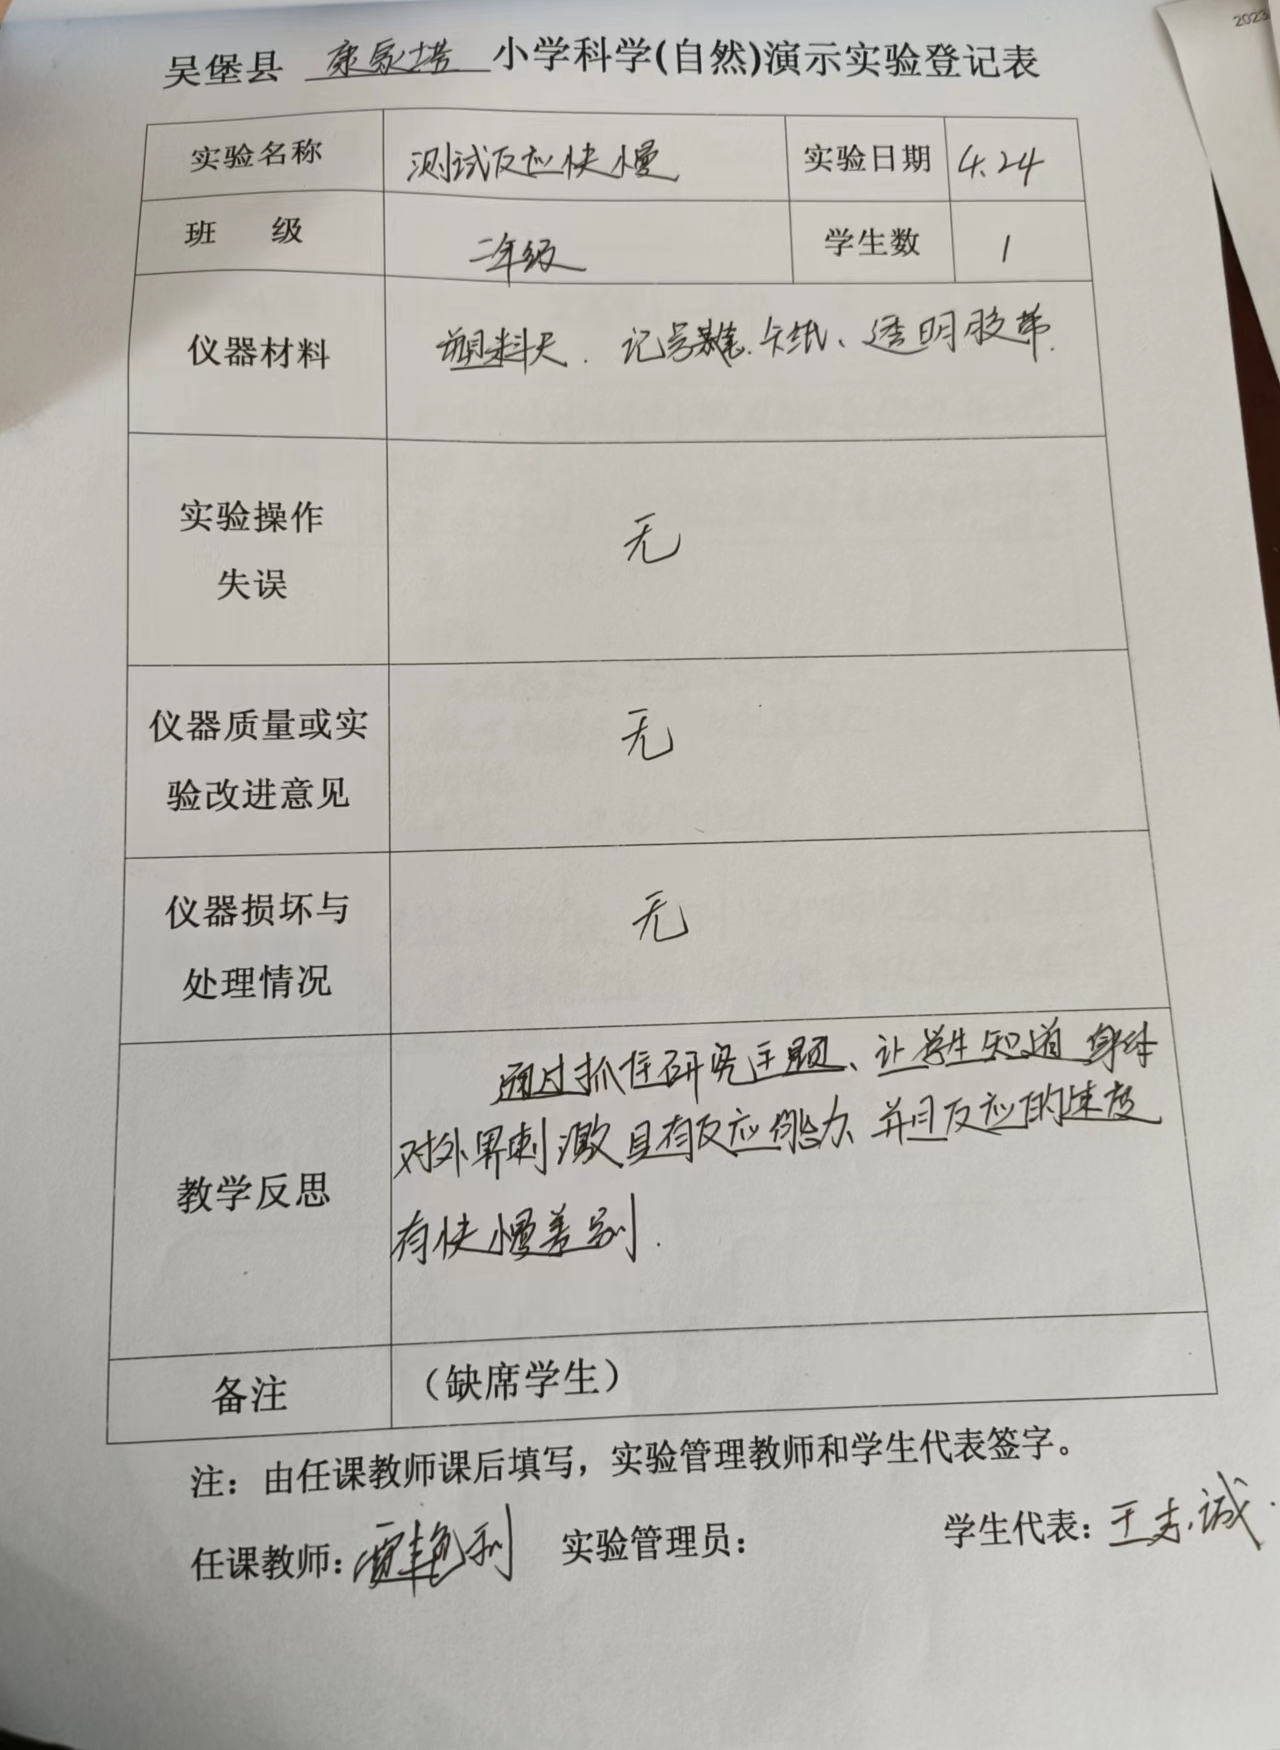 2023
吴堡县 康家塔 小学科学(自然)演示实验登记表
实验名称 测试反应快慢 实验日期 4.24
班 级 二年级 学生数 1
仪器材料 塑料尺. 记号笔. 卡纸、透明胶带.
实验操作
失误
无
仪器质量或实
验改进意见
无
仪器损坏与
处理情况
无
教学反思
通过抓住研究主题、让学生知道身体
对外界刺激具有反应能力、并且反应的速度
有快慢差别.
备注 （缺席学生）
注：由任课教师课后填写，实验管理教师和学生代表签字。
任课教师：贾艳利 实验管理员： 学生代表：王志诚